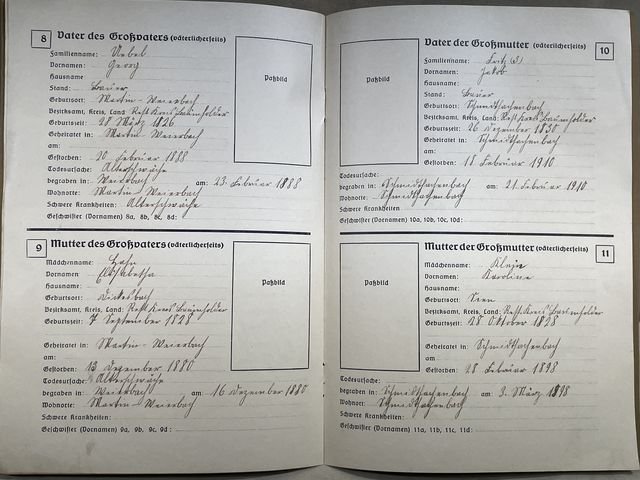 8 Vater des Großvaters (väterlicherseits)
Familienname: Uebel
Vornamen: Georg
Hausname
Stand: Bauer
Geburtsort: Martin-Weierbach
Bezirksamt, Kreis, Land: Rest Kreis Baumholder
Geburtszeit: 28 März 1826
Geheiratet in: Martin-Weierbach
am:
Gestorben: 20 Februar 1888
Todesursache: Altersschwäche
begraben in: Weierbach am: 23. Februar 1888
Wohnorte: Martin-Weierbach
Schwere Krankheiten: Altersschwäche
Geschwister (Vornamen) 8a, 8b, 8c, 8d:
Paßbild
9 Mutter des Großvaters (väterlicherseits)
Mädchenname: Hahn
Vornamen Elisabetha
Hausname:
Geburtsort: Dickesbach
Bezirksamt, Kreis, Land: Rest Kreis Baumholder
Geburtszeit: 7 September 1828
Geheiratet in: Martin-Weierbach
am:
Gestorben: 13 Dezember 1880
Todesursache: Altersschwäche
begraben in: Weierbach am: 16 Dezember 1880
Wohnorte: Martin-Weierbach
Schwere Krankheiten:
Geschwister (Vornamen) 9a, 9b, 9c, 9d:
Paßbild
Vater der Großmutter (väterlicherseits) 10
Familienname: Fritz
Vornamen: Jakob
Hausname
Stand: Bauer
Geburtsort: Schmidthachenbach
Bezirksamt, Kreis, Land: Rest Kreis Baumholder
Geburtszeit: 26 Dezember 1830
Geheiratet in: Schmidthachenbach
am:
Gestorben: 18 Februar 1910
Todesursache:
begraben in: Schmidthachenbach am: 21. Februar 1910
Wohnorte: Schmidthachenbach
Schwere Krankheiten:
Geschwister (Vornamen) 10a, 10b, 10c, 10d:
Paßbild
Mutter der Großmutter (väterlicherseits) 11
Mädchenname: Klein
Vornamen: Karoline
Hausname:
Geburtsort: Sien
Bezirksamt, Kreis, Land: Rest. Kreis Baumholder
Geburtszeit: 28 Oktober 1828
Geheiratet in: Schmidthachenbach
am:
Gestorben: 28 Februar 1898
Todesursache:
begraben in: Schmidthachenbach am: 3. März 1898
Wohnorte: Schmidthachenbach
Schwere Krankheiten:
Geschwister (Vornamen) 11a, 11b, 11c, 11d:
Paßbild